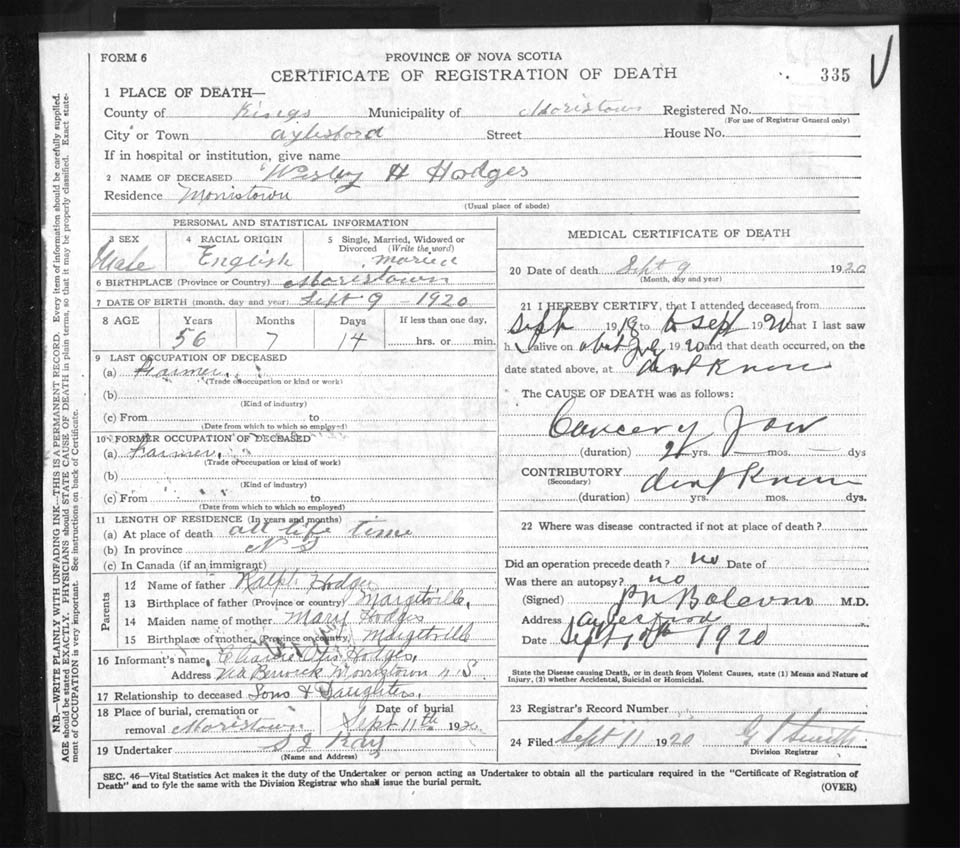 FORM 6
PROVINCE OF NOVA SCOTIA
CERTIFICATE OF REGISTRATION OF DEATH
335
1 PLACE OF DEATH—
County of Kings Municipality of Moristown Registered No.
(For use of Registrar General only)
City or Town Aylesford Street House No.
If in hospital or institution, give name
2 NAME OF DECEASED Wesley H Hodges
Residence Morristown
(Usual place of abode)
PERSONAL AND STATISTICAL INFORMATION
3 SEX
Male
4 RACIAL ORIGIN
English
5 Single, Married, Widowed or
Divorced (Write the word)
6 BIRTHPLACE (Province or Country) Moristown
7 DATE OF BIRTH (month, day and year) Sept 9 - 1920
8 AGE
Years Months Days If less than one day,
56 7 14 hrs. or min.
9 LAST OCCUPATION OF DECEASED
(a) Farmer,
(Trade or occupation or kind or work)
(b)
(Kind of industry)
(c) From to
(Date from which to which so employed)
10 FORMER OCCUPATION OF DECEASED
(a) Farmer,
(Trade or occupation or kind of work)
(b)
(Kind of industry)
(c) From to
(Date from which to which so employed)
11 LENGTH OF RESIDENCE (In years and months)
(a) At place of death all life time
(b) In province N S
(c) In Canada (if an immigrant)
Parents
12 Name of father Ralph Hodges
13 Birthplace of father (Province or country) Margetville,
14 Maiden name of mother Mary Hodges
15 Birthplace of mother (Province or country) Margetville
16 Informant's name, Hodges,
Address Via Berwick Morristown N.S
17 Relationship to deceased Sons & Daughters,
18 Place of burial, cremation or removal Moristown
Date of burial
Sept 11th 1920
19 Undertaker
(Name and Address)
MEDICAL CERTIFICATE OF DEATH
20 Date of death Sept 9 1920
(Month, day and year)
21 I HEREBY CERTIFY, that I attended deceased from
Sept 1918 to Sept 1920 that I last saw
h alive on about 1920 and that death occurred, on the
date stated above, at dont Know
The CAUSE OF DEATH was as follows:
Cancer of Jaw
(duration) 2 yrs. mos. dys
CONTRIBUTORY
(Secondary)
dont Know
(duration) yrs. mos. dys.
22 Where was disease contracted if not at place of death?
Did an operation precede death? no Date of
Was there an autopsy? no
(Signed) M.D.
Address Aylesford
Date Sept 10th 1920
State the Disease causing Death, or in death from Violent Causes, state (1) Means and Nature of
Injury, (2) whether Accidental, Suicidal or Homicidal.
23 Registrar's Record Number
24 Filed Sept 11 1920
Division Registrar
SEC. 46—Vital Statistics Act makes it the duty of the Undertaker or person acting as Undertaker to obtain all the particulars required in the "Certificate of Registration of
Death" and to fyle the same with the Division Registrar who shall issue the burial permit.
(OVER)
N.B.—WRITE PLAINLY WITH UNFADING INK—THIS IS A PERMANENT RECORD. Every item of information should be carefully supplied.
AGE should be stated EXACTLY. PHYSICIANS should STATE CAUSE OF DEATH in plain terms, so that it may be properly classified. Exact state-
ment of OCCUPATION is very important. See instructions on back of Certificate.